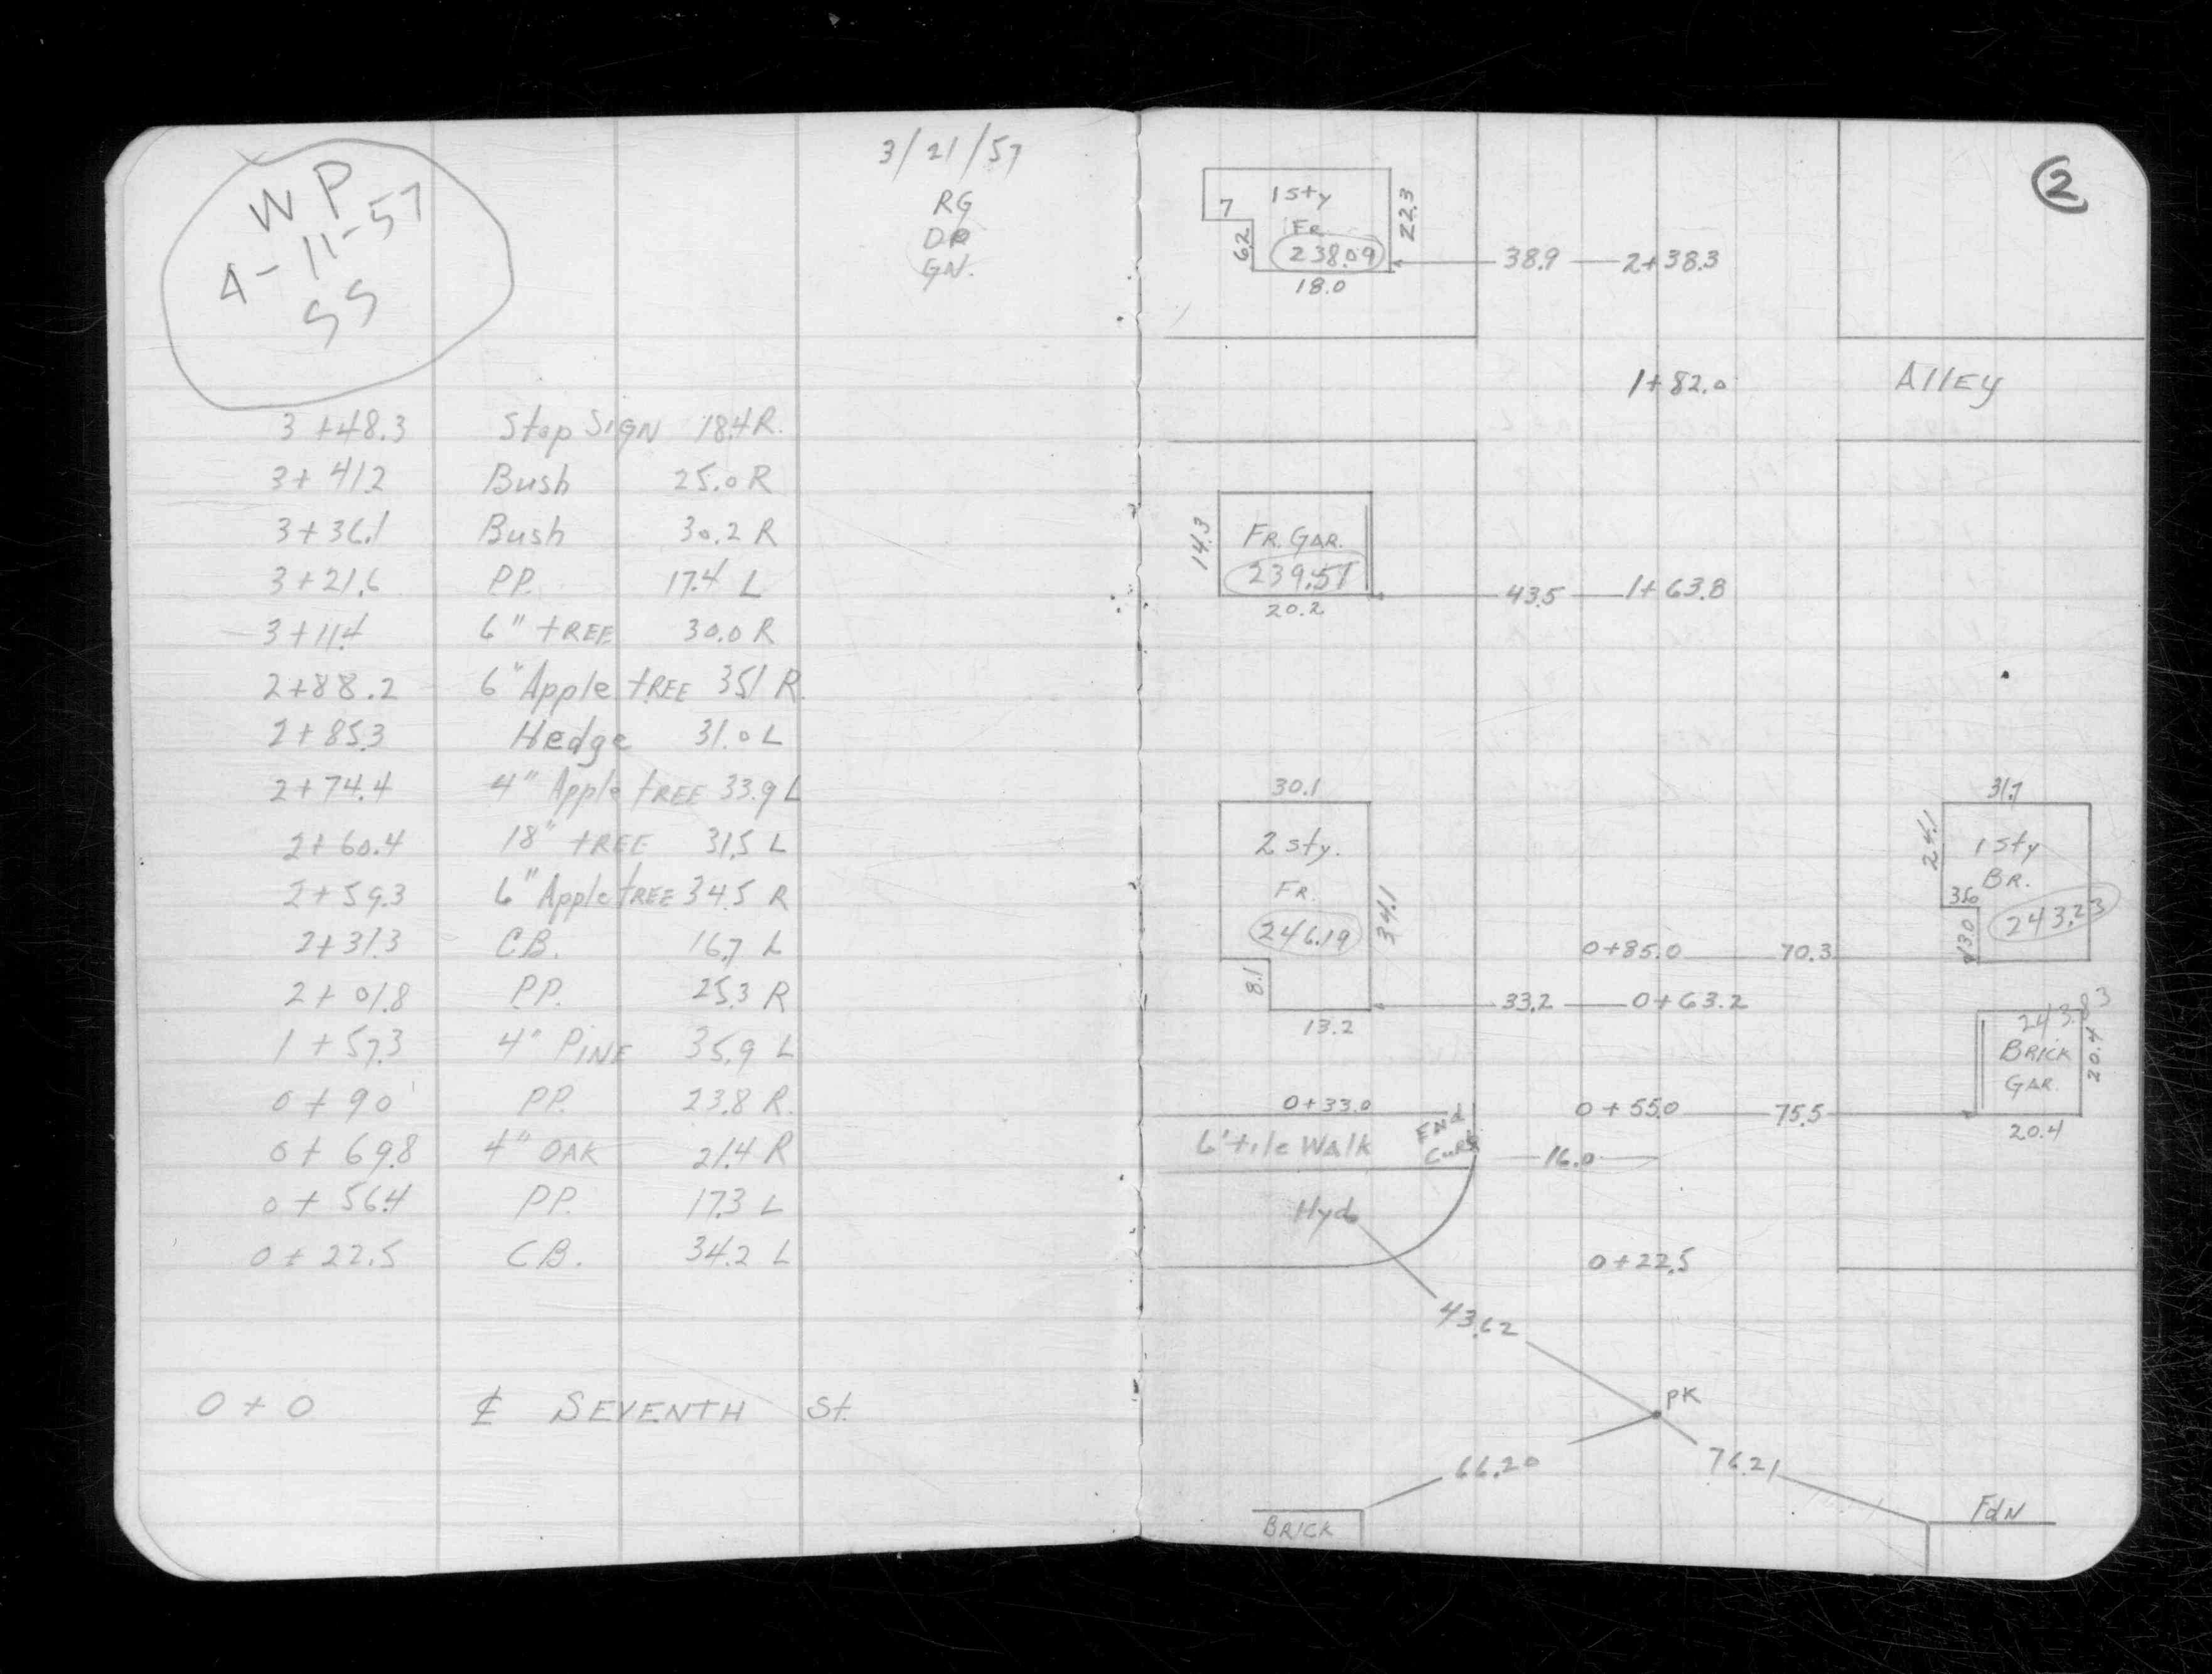 W P
4-11-57
SS
3/21/57
RG
DR
GN.
3+48.3 Stop SIGN 18.4 R.
3+41.2 Bush 25.0 R
3+36.1 Bush 30.2 R
3+21.6 P.P. 17.4 L
3+11.4 6" tREE 30.0 R
2+88.2 6" Apple tREE 35.1 R.
2+85.3 Hedge 31.0 L
2+74.4 4" Apple tREE 33.9 L
2+60.4 18" tREE 31.5 L
2+59.3 6" Apple tREE 34.5 R
2+31.3 C.B. 16.7 L
2+01.8 P.P. 25.3 R
1+57.3 4" PINE 35.9 L
0+90 P.P. 23.8 R.
0+69.8 4" OAK 21.4 R
0+56.4 P.P. 17.3 L
0+22.5 C.B. 34.2 L
0+0 ℄ SEVENTH St.
2
7 1 sty 22.3
FR.
6.2 238.09 38.9 2+38.3
18.0
1+82.0 Alley
14.3 FR. GAR.
239.57 43.5 1+63.8
20.2
30.1 31.7
2 sty. 24.1 1 sty
FR. BR.
34.1 3.6
246.19 13.0 243.23
0+85.0 70.3
8.1 33.2 0+63.2
13.2 243.83
BRICK 20.4
GAR.
0+33.0 0+55.0 75.5
20.4
6' tile Walk ENd
CuRb 16.0
Hyd.
0+22.5
43.62
PK
66.20 76.21
BRICK FdN